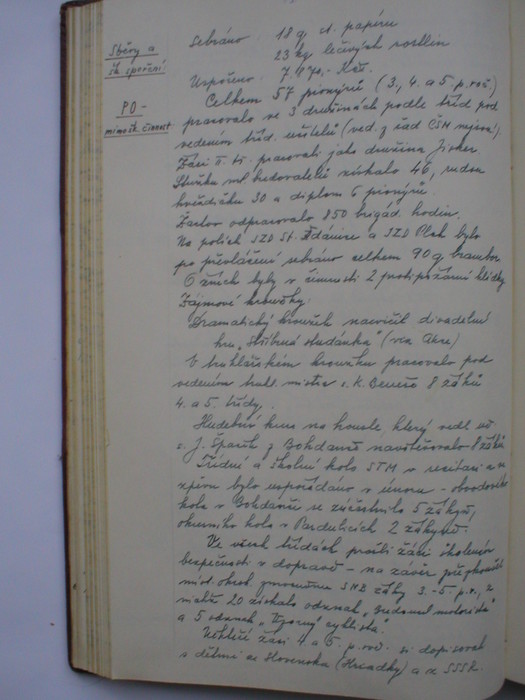 Sběry a
šk. spoření:
Sebráno: 18 q st. papíru
23 kg léčivých rostlin
Uspořeno: Kčs.
PO-
mimošk. činnost
Celkem 57 pionýrů (3., 4. a 5. p. roč.)
pracovalo ve 3 družinách podle tříd pod
vedením tříd. učitelů (ved. z řad ČSM nejsou).
Žáci II. tř. pracovali jako družina Jisker.
Stužku ml. budovatelů získalo 46, rudou
hvězdičku 30 a diplom 6 pionýrů.
Žactvo odpracovalo 850 brigád. hodin.
Na polích JZD St. Ždánice a JZD Plch bylo
po převláčení sebráno celkem 90 q brambor
O žních byly v činnosti 2 protipožární hlídky
Zájmové kroužky:
Dramatický kroužek nacvičil divadelní
hru „Stříbrná studánka" (viz Akce)
V truhlářském kroužku pracovalo pod
vedením truhl. mistra s. K. Beneše 8 žáků
4. a 5. třídy.
Hudební kurs na housle který vedl uč.
s. J. z Bohdanče navštěvovalo 8 žáků
Třídní a školní kolo STM v recitaci a ve
zpěvu bylo uspořádáno v únoru - obvodového
kola v Bohdanči se zúčastnilo 5 žáků,
okresního kola v Pardubicích 2 žákyně.
Ve všech třídách prošli žáci školením
bezpečnosti v dopravě - na závěr
okrsk. SNB žáky 3.-5. p. r., z
nichž 20 získalo odznak
a 5 odznak „Vzorný cyklista".
Někteří žáci 4. a 5. p. roč. si dopisovali
s dětmi ze Slovenska (Hriadky) a z SSSR.